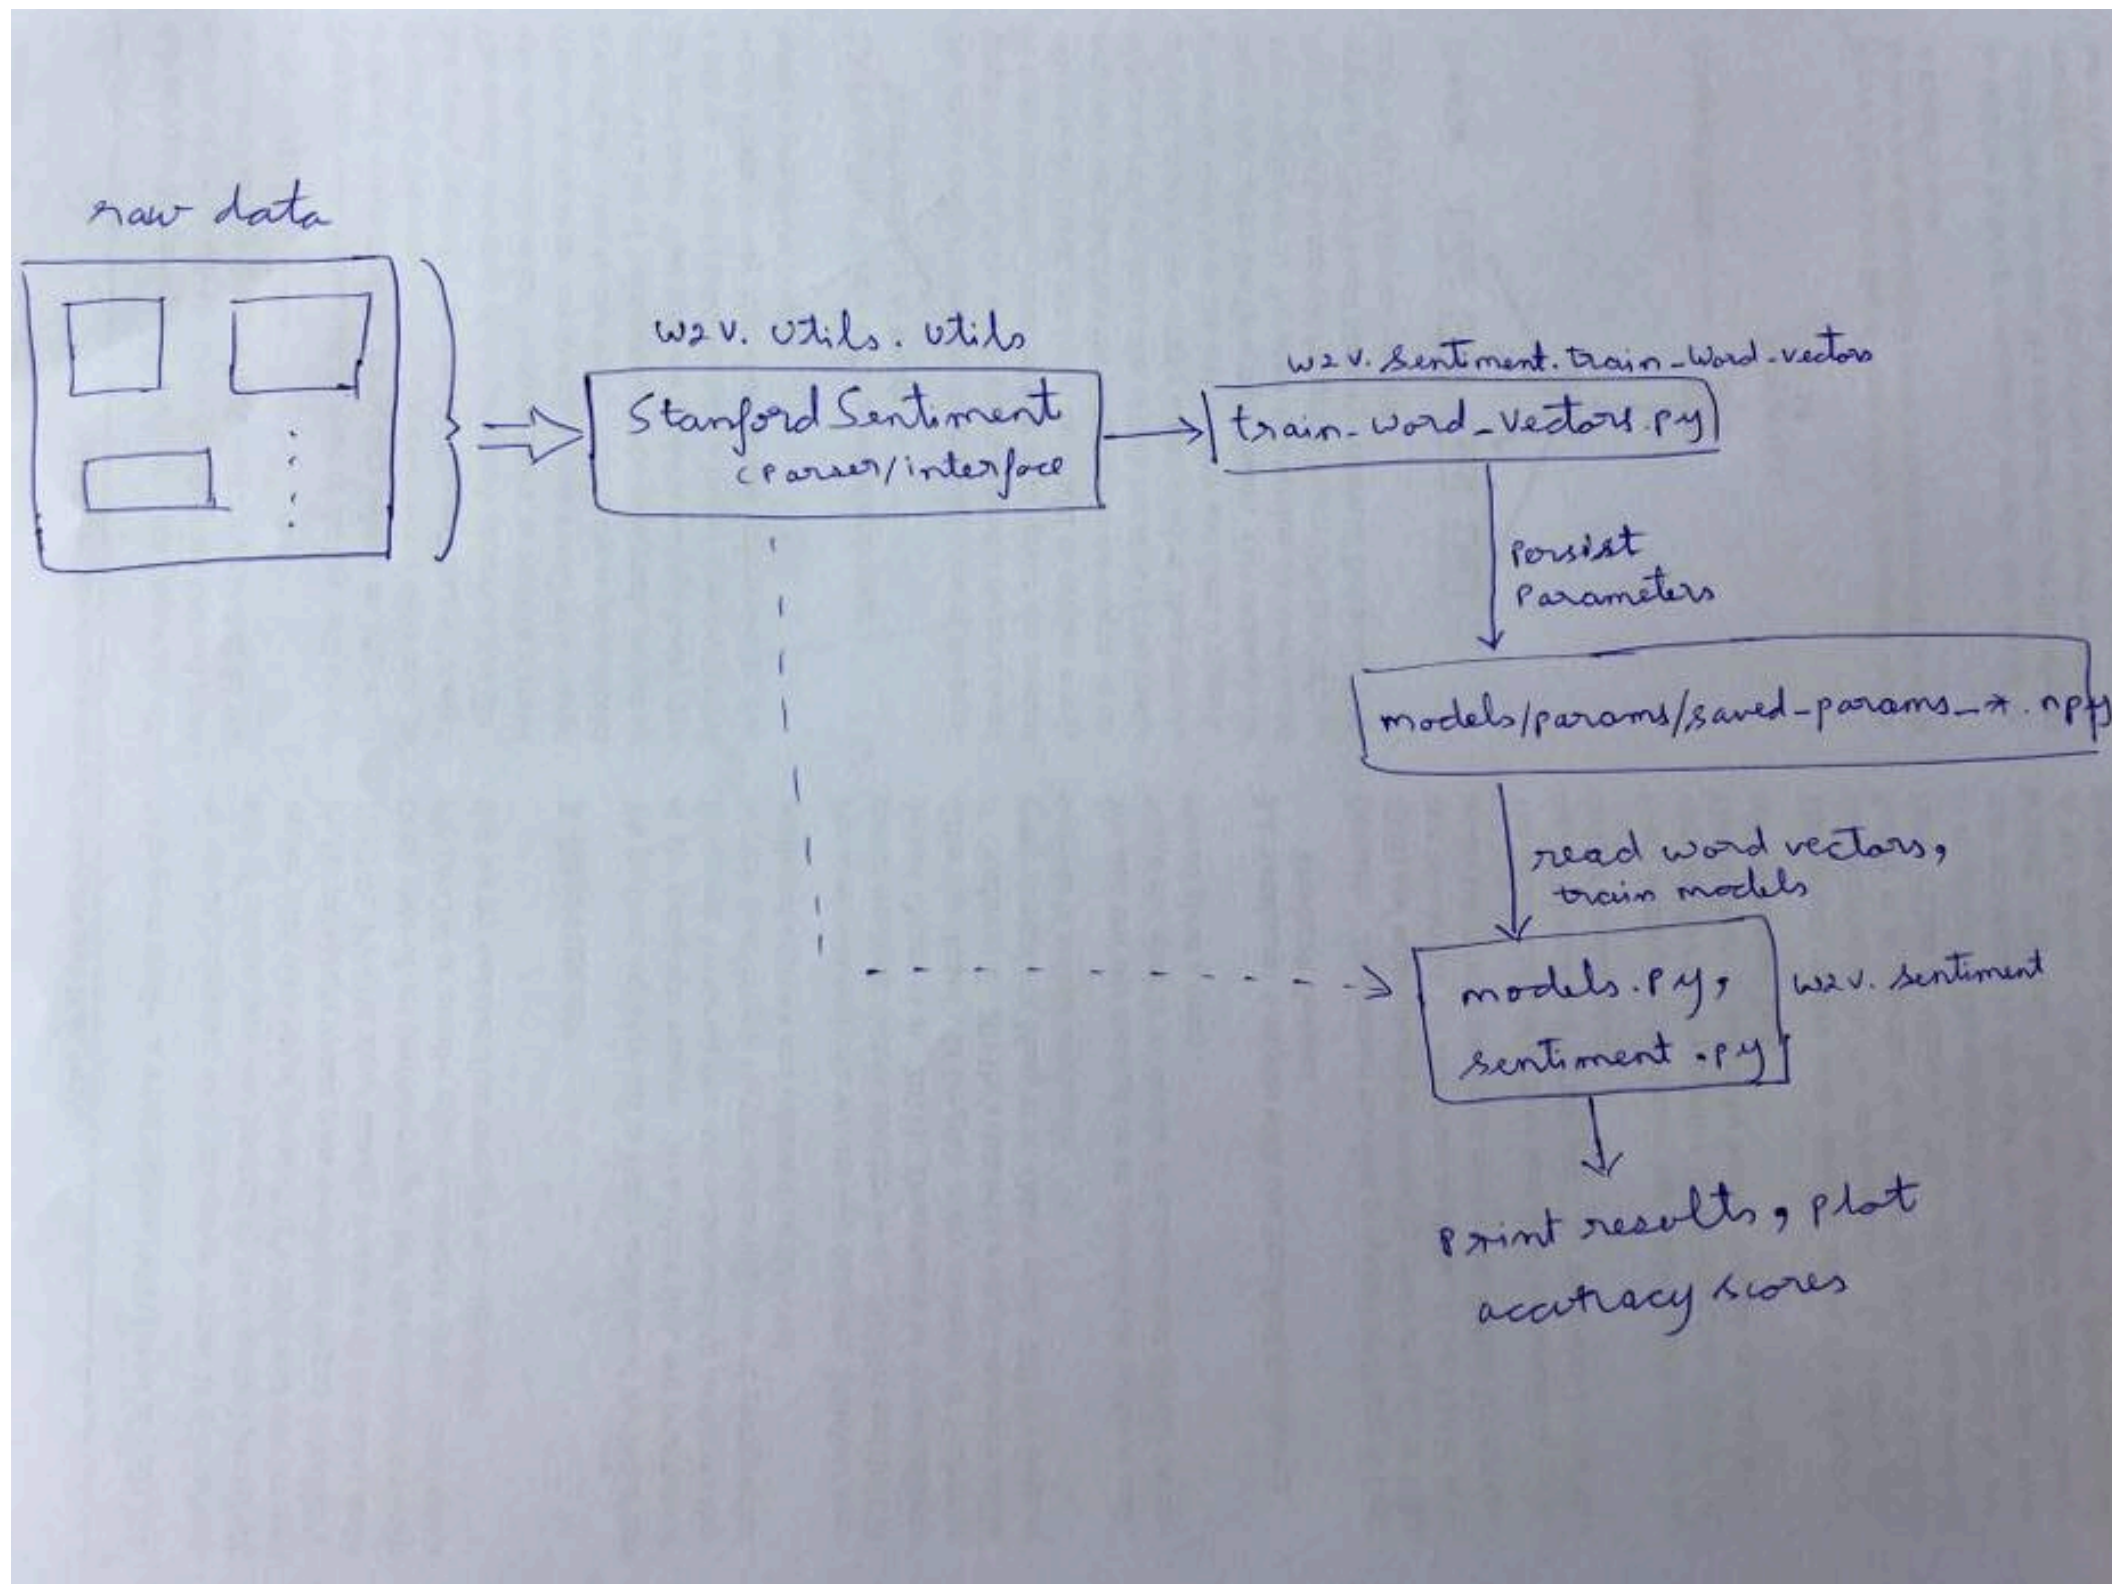 raw data
w2v.utils.utils
Stanford Sentiment
(Parser/interface
w2v.sentiment.train_word_vectors
train_word_vectors.py
Persist
Parameters
models/params/saved_params_*.npy
read word vectors,
train models
models.py,
sentiment.py
w2v.sentiment
Print results, plot
accuracy scores